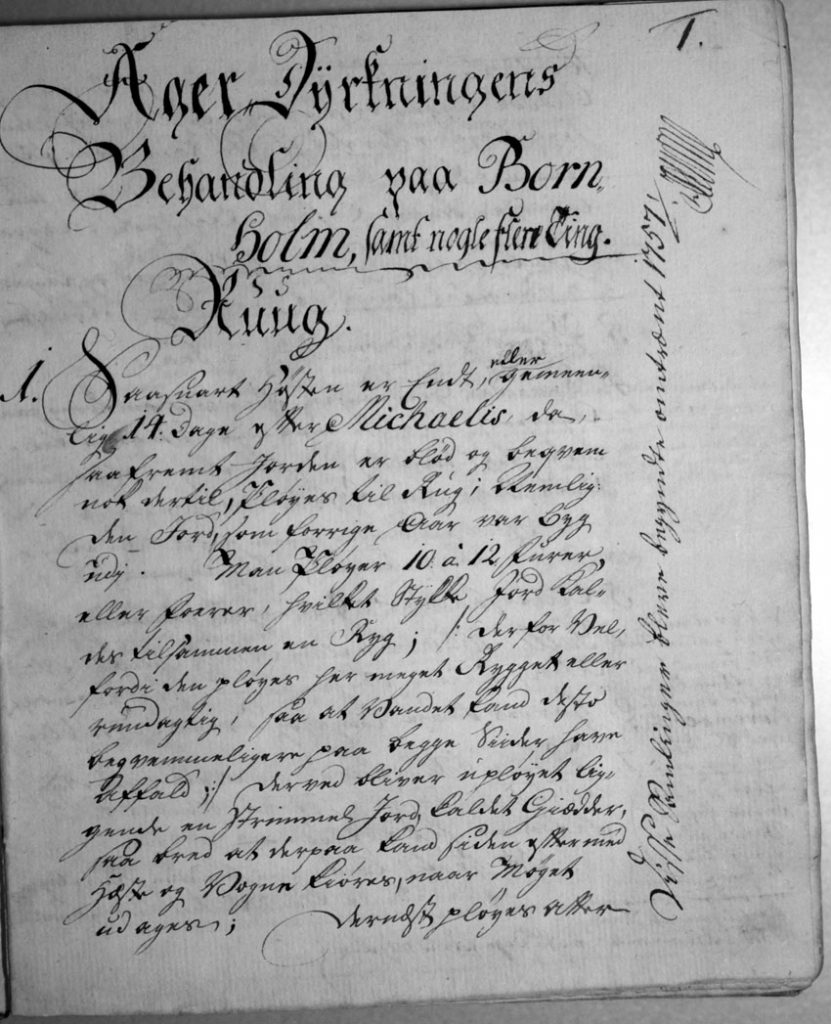 1.
Ager Dyrkningens
Behandling paa Born,
holm, samt nogle flere Ting.
Ruug.
1. Saasnart Høsten er Endt, eller gemeen,,
lig 14. Dage efter Michaelis, da,
saafremt Jorden er blød og beqvem
nok dertil, Pløyes til Rug; Nemlig:
den Jord, som forrige Aar var Byg
udj. Man Pløyer 10. à 12 furer,
eller foerer, hvilket Stykke Jord kal,,
des tilsammen en Ryg; /: derfor Vel,
fordi den pløyes her meget Rygget eller
rundagtig, saa at Vandet kand desto
beqvemmeligere paa begge Siider have
affald; :/ derved bliver upløyet lig,,
gende en strimmel Jord, kaldet Giædder,
saa bred at derpaa kand siden efter med
Hæste og Vogne kiøres, naar Møget
udages; dernæst pløyes atter
Disse Samlinger bleve begyndte omtrent 1757,